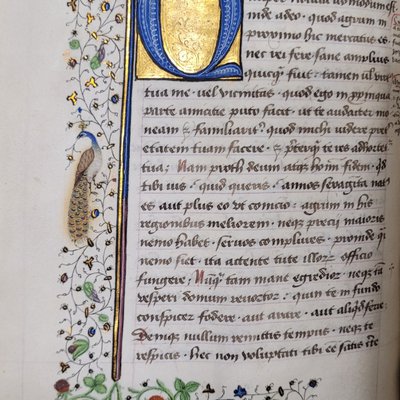 Q
inde adeo · quod agrum in
proximo hic mercatus es ·
nec rei fere sane amplius
quicq̄ fuit · tamen ul̄ virt
tua me · vel vicinitas · quod ego in ꝓpinqua
parte amicitie puto facit · ut te audaiter mo
neam & familiarit᷑ · quod michi videre p̄ter
etatem tuam facere · & p̄terq̄ te res adhorta
tur · Nam proh deum atq; hoīm fidem · qd
tibi uis · quid queris · annos sexagīta nat
es aut plus eo ut conicio · agrum in his
regionibus meliorem · neq; precij maioris
nemo habet · seruos complures · proinde q̄
nemo siet · ita actente tute illoꝝ officio
fungere · Nūq̄ tam mane egredior · neq; tā
vesperi domum reuortor · quin te in fundo
conspicer fodere · aut arare · aut aliqd ferre ·
Deniq; nullum remittis tempus · neq; te
respicis · hec non voluptati tibi eē satis